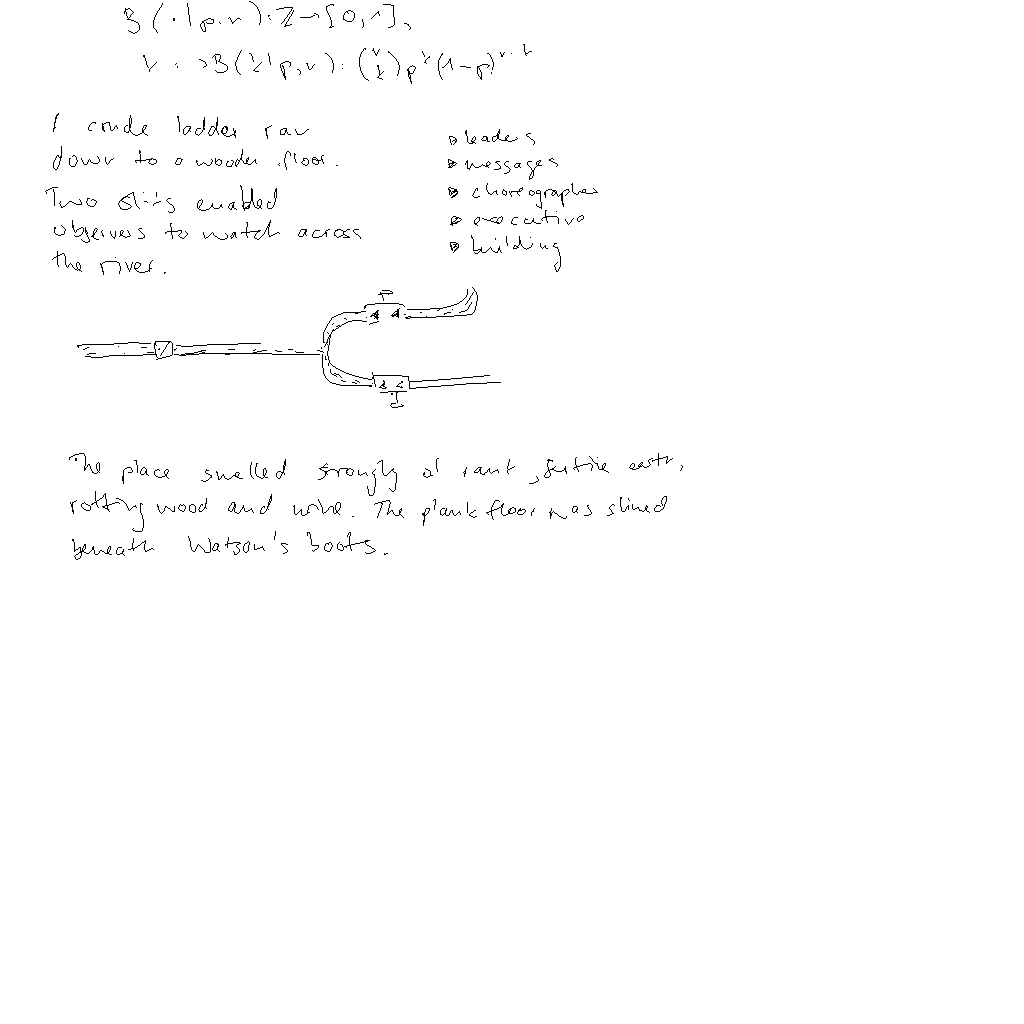 B(·|p,n): ℤ→[0,1],
k ↦ B(k|p,n) = (n k) p^k (1-p)^{n-k}
A crude ladder ran
down to a wooden floor.
Two slits enabled
observers to watch across
the river.
leaders
messages
choreographer
executive
building
The place smelled strongly of rank, fertile earth,
rotting wood and wine. The plank floor was slimed
beneath Watson's boots.